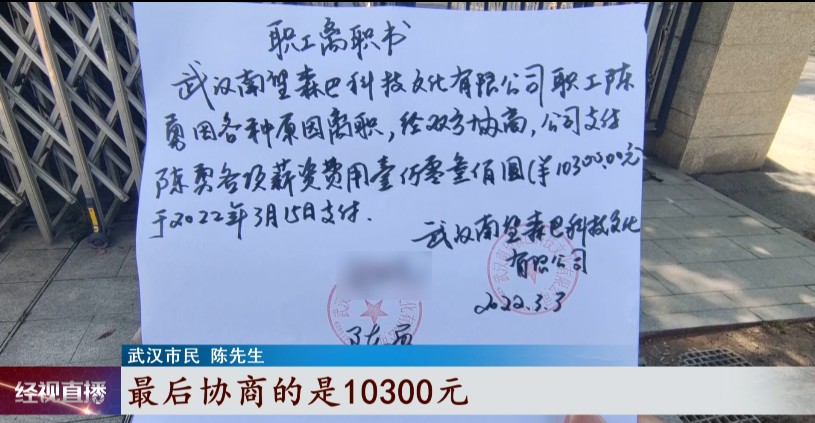 职工离职书
武汉南望森巴科技文化有限公司职工陈
勇因各种原因离职，经双方协商，公司支付
陈勇各项薪资费用壹仟零叁佰圆（羊10300.00元
于2022年3月15日支付.
武汉南望森巴科技文化
有限公司
2022.3.3
陈勇
武汉市民 陈先生
经视直播
最后协商的是10300元